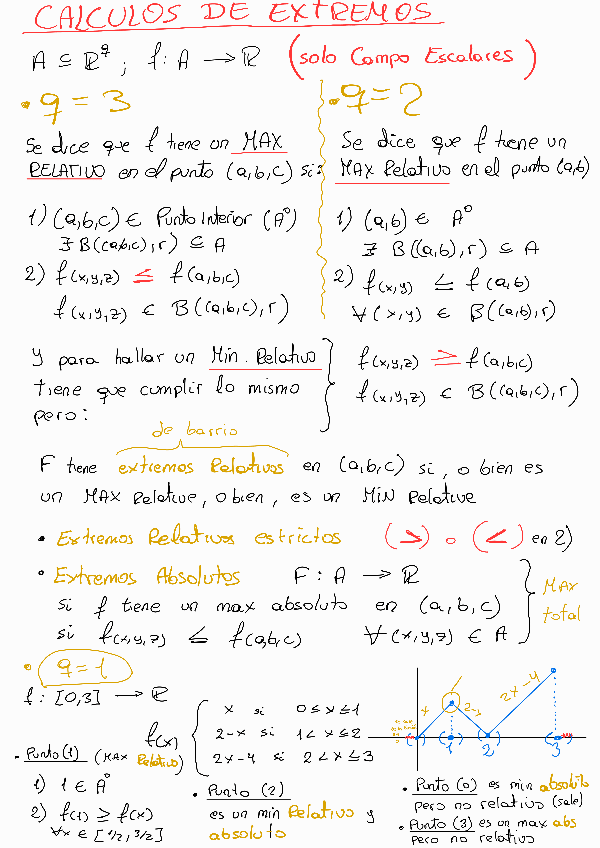 CALCULOS DE EXTREMOS
A ⊆ ℝ^q ; f: A → ℝ (solo Campo Escalares)
• q = 3
Se dice que f tiene un MAX
RELATIVO en el punto (a,b,c) si:
1) (a,b,c) ∈ Punto Interior (A°)
∃ B((a,b,c),r) ⊆ A
2) f(x,y,z) ≤ f(a,b,c)
f(x,y,z) ∈ B((a,b,c),r)
• q = 2
Se dice que f tiene un
MAX Relativo en el punto (a,b)
1) (a,b) ∈ A°
∃ B((a,b),r) ⊆ A
2) f(x,y) ≤ f(a,b)
∀(x,y) ∈ B((a,b),r)
Y para hallar un Min. Relativo
tiene que cumplir lo mismo
pero:
f(x,y,z) ≥ f(a,b,c)
f(x,y,z) ∈ B((a,b,c),r)
de barrio
F tiene extremos Relativos en (a,b,c) si, o bien es
un MAX Relative, o bien, es un MIN Relative
• Extremos Relativos estrictos (>) o (<) en 2)
• Extremos Absolutos F: A → ℝ
si f tiene un max absoluto en (a,b,c)
si f(x,y,z) ≤ f(a,b,c) ∀(x,y,z) ∈ A
MAX
total
• q = 1
f: [0,3] → ℝ
f(x)
x si 0≤x≤1
2-x si 1<x≤2
2x-4 si 2<x≤3
x
2-x
2x-4
0
1
2
3
• Punto(1) (MAX Relativo)
1) 1 ∈ A°
2) f(1) ≥ f(x)
∀x ∈ [1/2, 3/2]
• Punto (2)
es un min Relativo y
absoluto
• Punto (0) es min absoluto
pero no relativo (sale)
• Punto (3) es un max abs
pero no relativo